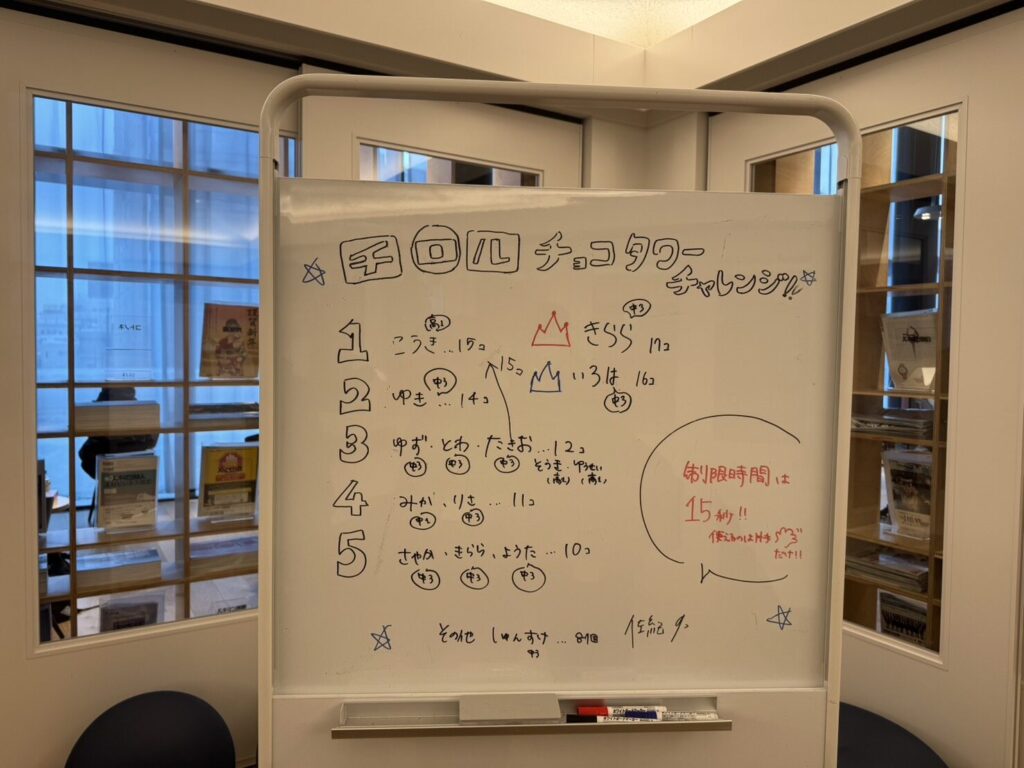 チロルチョコタワー
チャレンジ!!
1 こうき…15コ 高1
きらら 17コ 中3
15コ
いろは 16コ 中3
2 ゆき…14コ 中3
3 ゆず・とわ・たきお…12コ
中3 中3 中3
そうき・ゆうせい
(高1) (高1)
4 みか、りさ…11コ
中3
5 さやか、きらら、ようた…10コ
中3 中3 中3
制限時間は
15秒!!
使えるのは片手
だけ!!
その他 しゅんすけ…8個
中3
佐紀 9コ